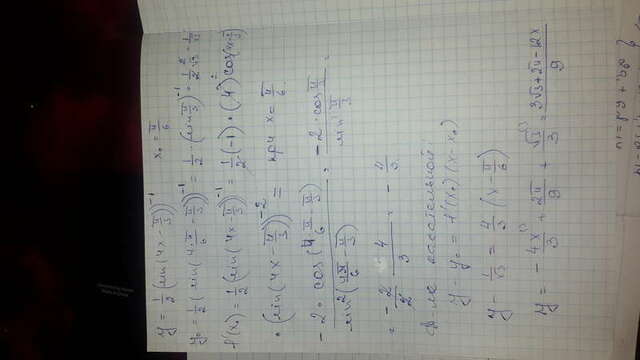 y = 1/2 (sin(4x - π/3))^-1   x₀ = π/6
y₀ = 1/2 (sin(4·π/6 - π/3))^-1 = 1/2 · (sin π/3)^-1 = 1/2 · 2/√3 = 1/√3
f'(x₀) = 1/2 (sin(4x - π/3))^-1 = 1/2 (-1) · (4) cos(4x - π/3)
· (sin(4x - π/3))^-2 = при x₀ = π/6
-2 · cos(4π/6 - π/3) / sin²(4π/6 - π/3) = -2 · cos π/3 / sin² π/3 =
= - 2/2 · 4/3 = - 4/3
ф-ла касательной
y - y₀ = f'(x₀)(x - x₀)
y - 1/√3 = 4/3 (x - π/6)
y = - 4x/3 + 2π/9 + √3/3 = 3√3 + 2π - 12x / 9